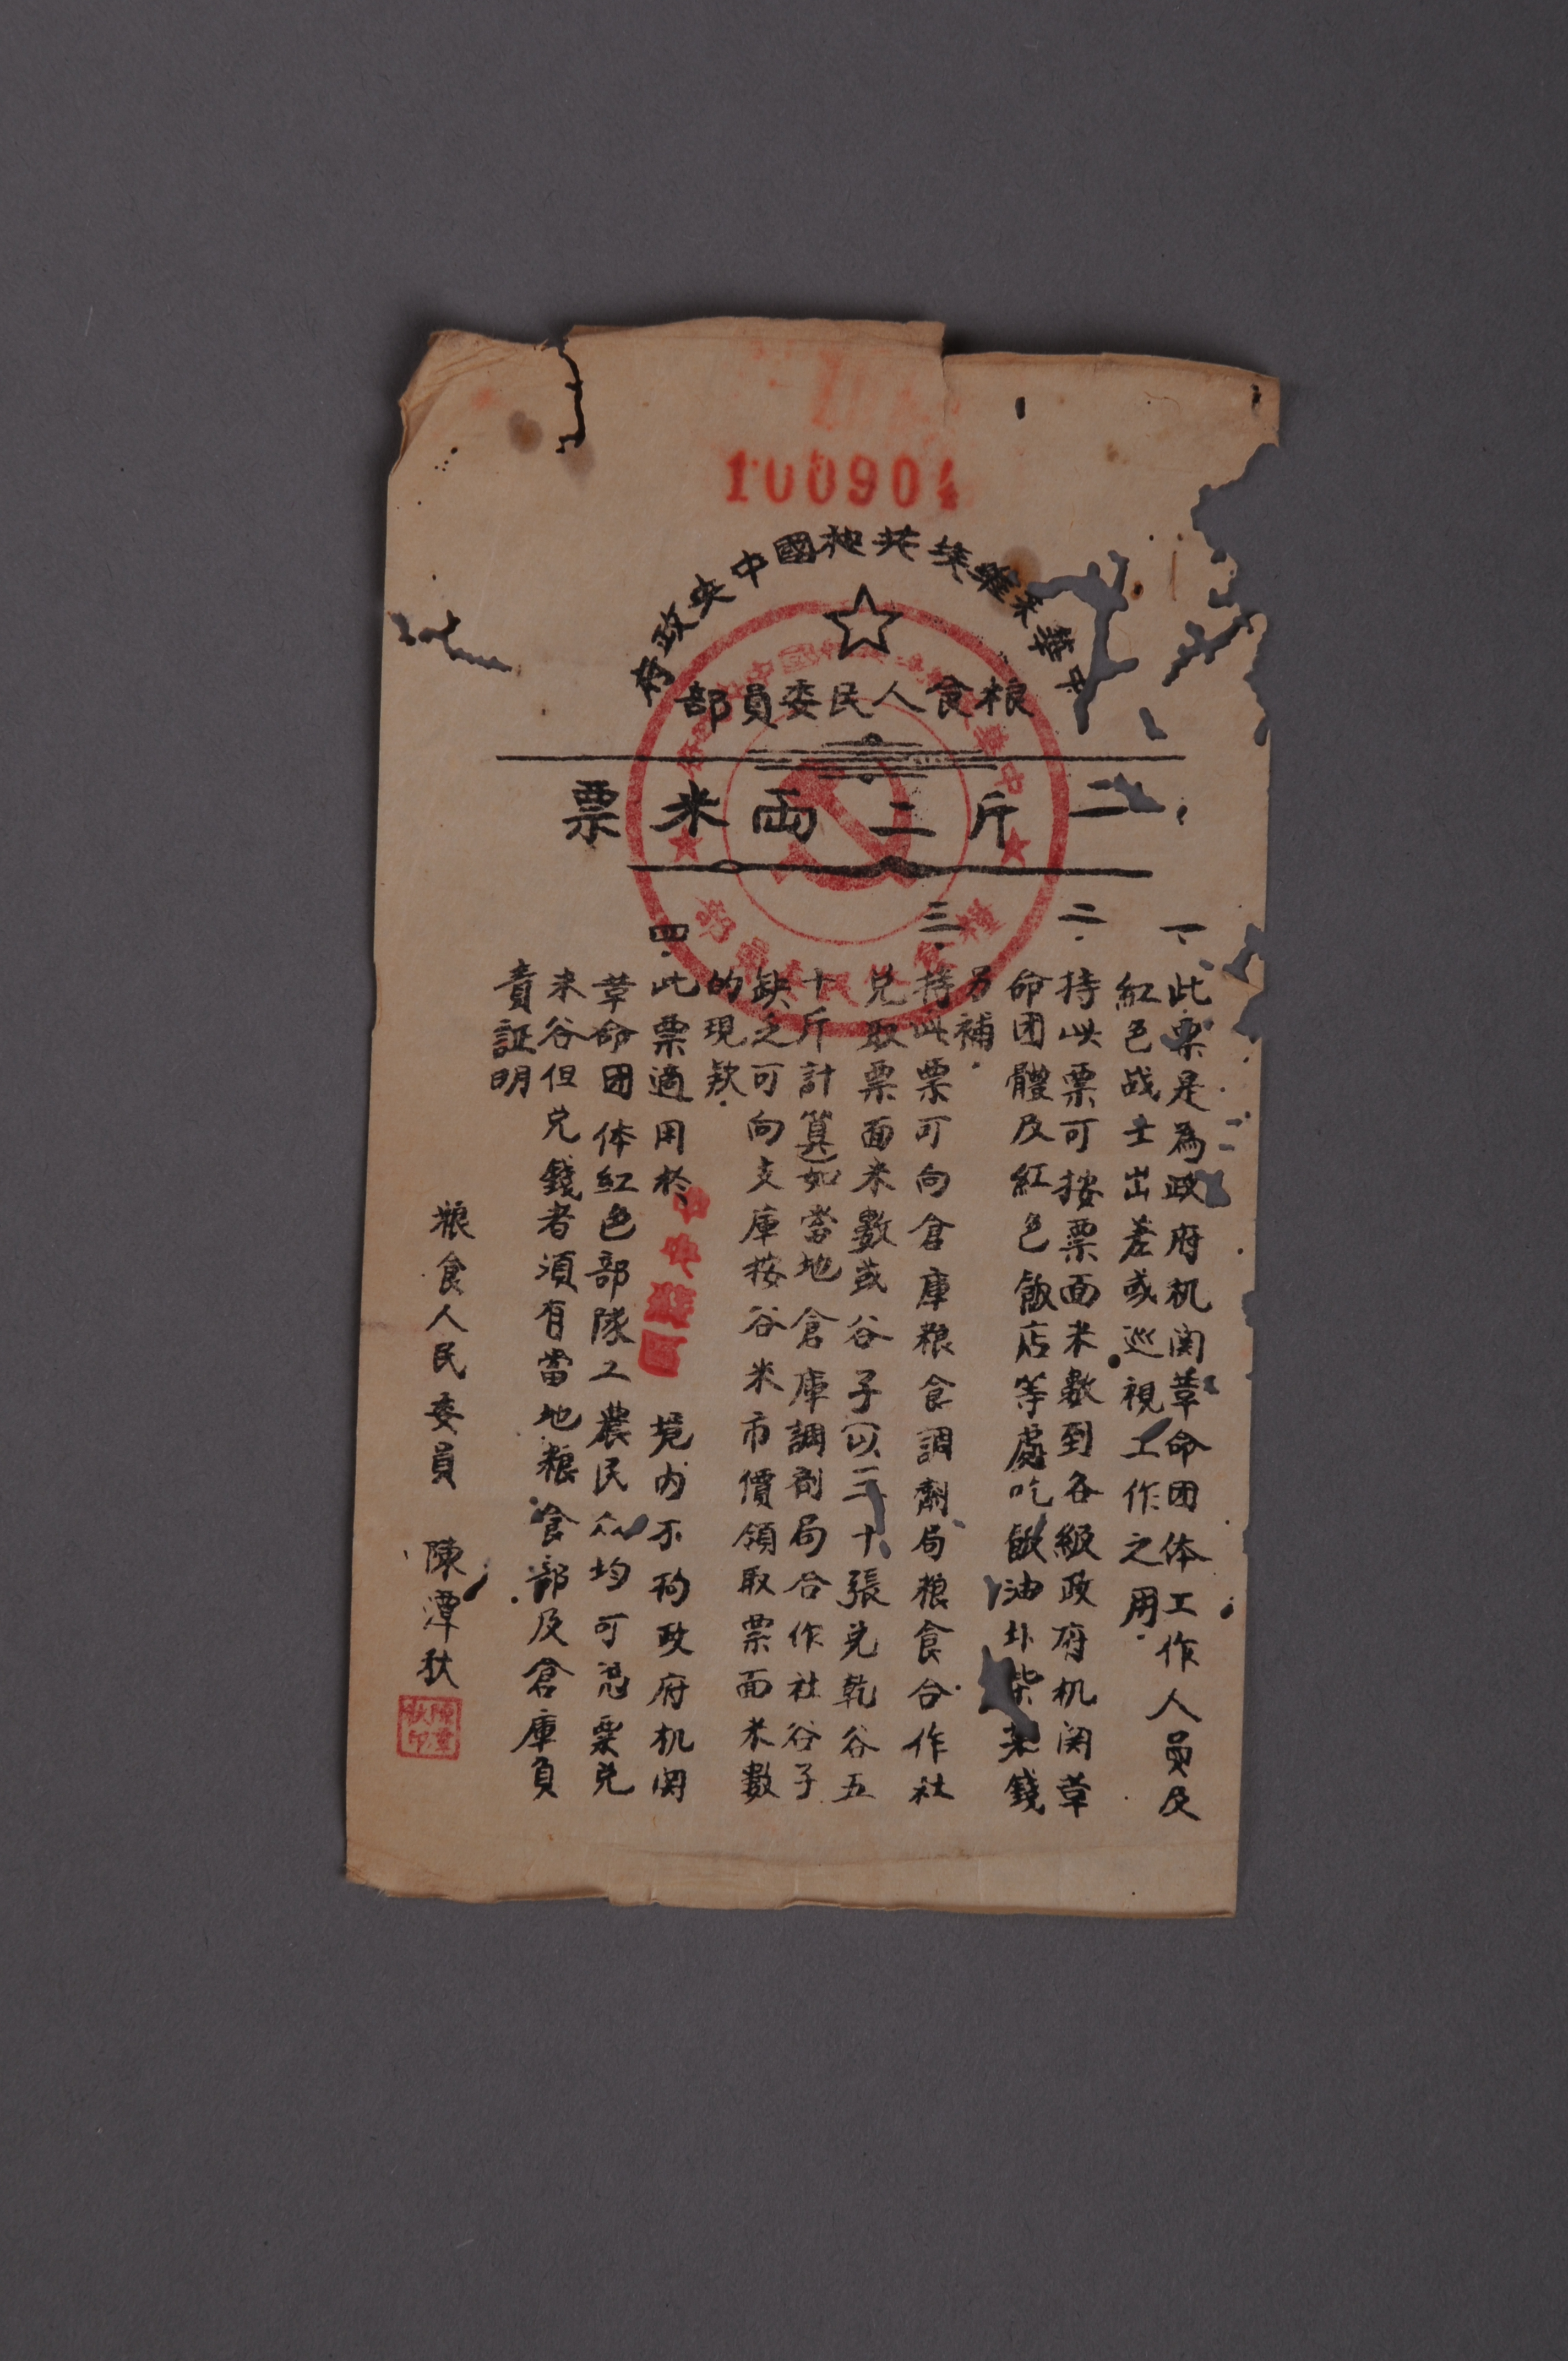 100904
中華蘇維埃共和國中央政府
粮食人民委員部
二斤二両米票
一、此票是為政府机関革命团体工作人員及
紅色战士出差或巡視工作之用.
二.持此票可按票面米數到各級政府机関革
命团體及紅色飯店等處吃飯油外柴菜錢
另補.
三.持此票可向倉庫粮食調劑局粮食合作社
兑取票面米數或谷子(以二十張兑乾谷五
十斤計算)如當地倉庫調剂局合作社谷子
缺乏可向支庫按谷米市價領取票面米數
的現款.
四.此票適用於中央蘇區境内不拘政府机関
革命团体紅色部隊工農民众均可凭票兑
米谷但兑錢者須有當地粮食部及倉庫負
責証明
粮食人民委員 陳潭秋
陳潭秋印